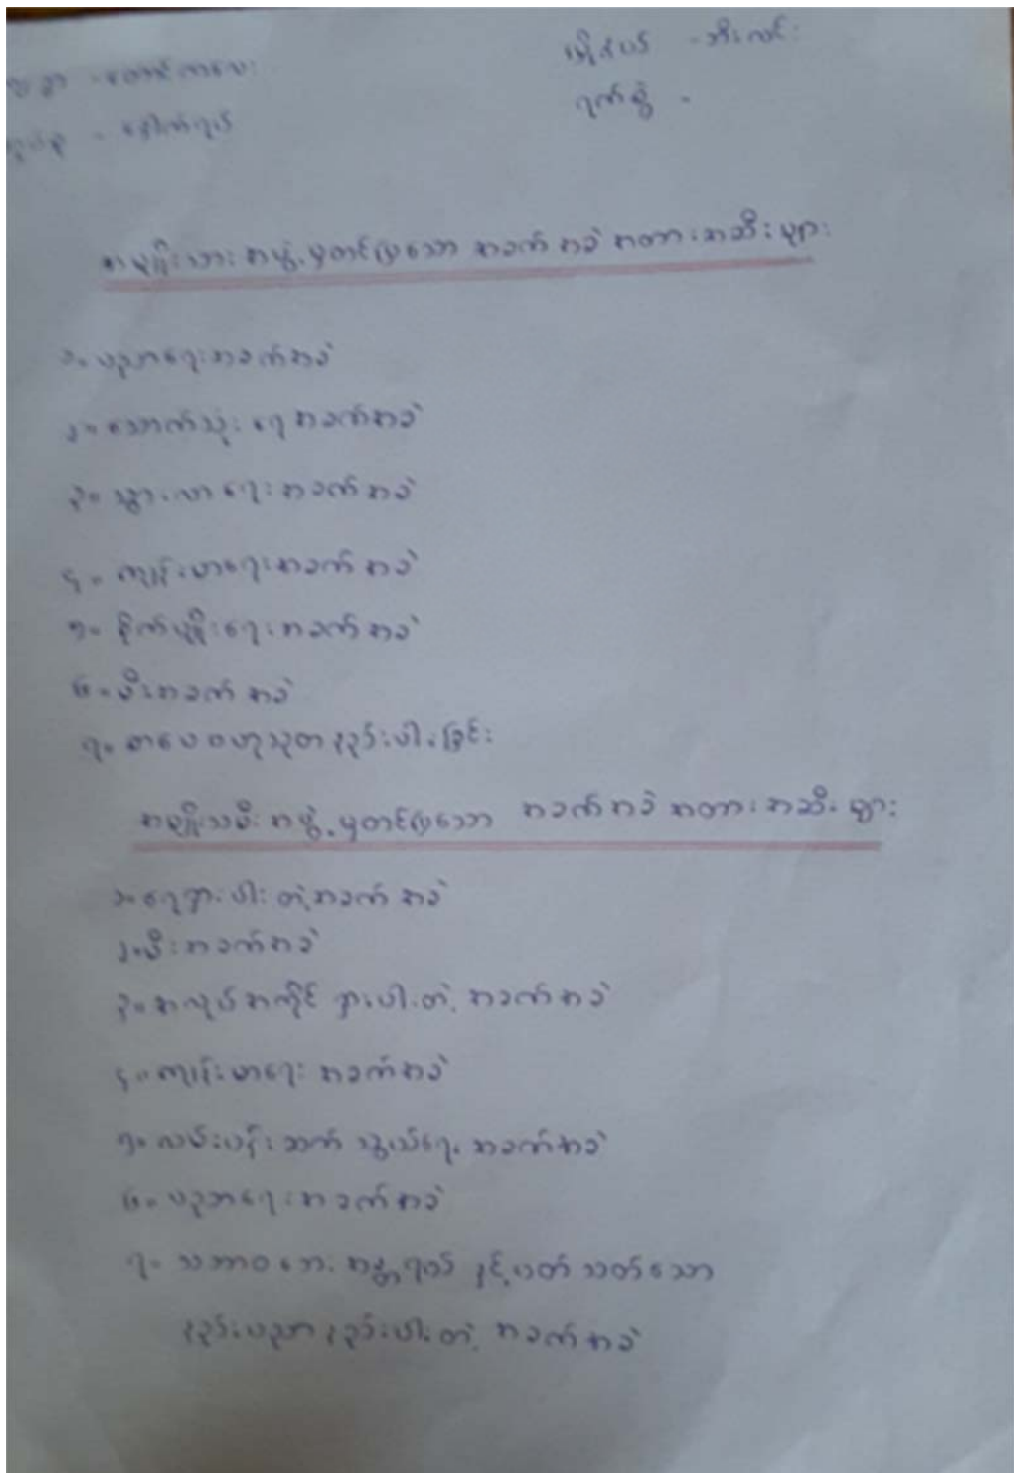 ကျေးရွာ - တောင်ကလေး မြို့နယ် - ဘီးလင်း
ရက်စွဲ -
အမျိုးသားအဖွဲ့မှတင်ပြသော အခက်အခဲ အတားအဆီးများ
၁။ ပညာရေးအခက်အခဲ
၂။ သောက်သုံးရေ အခက်အခဲ
၃။ သွားလာရေး အခက်အခဲ
၄။ ကျန်းမာရေးအခက်အခဲ
၅။ စိုက်ပျိုးရေးအခက်အခဲ
၆။ မီးအခက်အခဲ
၇။ စာပေဗဟုသုတ နည်းပါးခြင်း
အမျိုးသမီးအဖွဲ့မှတင်ပြသော အခက်အခဲ အတားအဆီးများ
၁။ ရေရှားပါးတဲ့အခက်အခဲ
၂။ မီးအခက်အခဲ
၃။ အလုပ်အကိုင် ရှားပါးတဲ့ အခက်အခဲ
၄။ ကျန်းမာရေး အခက်အခဲ
၅။ လမ်းပန်းဆက်သွယ်ရေး အခက်အခဲ
၆။ ပညာရေးအခက်အခဲ
၇။ သဘာဝဘေးအန္တရာယ် နှင့်ပတ်သတ်သော
နည်းပညာနည်းပါးတဲ့ အခက်အခဲ